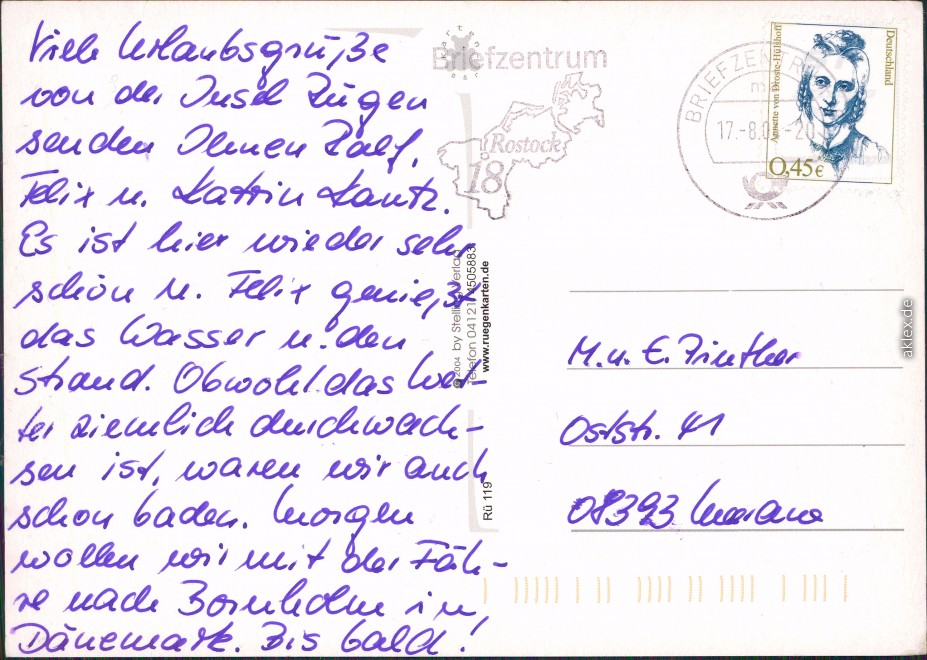 Viele Urlaubsgrüße
von der Insel Rügen
senden Ihnen Ralf,
Felix u. Katrin Kantz.
Es ist hier wieder sehr
schön u. Felix genießt
das Wasser u. den
Strand. Obwohl das Wet-
ter ziemlich durchwach-
sen ist, waren wir auch
schon baden. Morgen
wollen wir mit der Fäh-
re nach Bornholm in,
Dänemark. Bis bald!
Briefzentrum
Rostock
18
BRIEFZENTR
17.-8.0 -20
Deutschland
Annette von Droste-Hülshoff
0,45€
© 2004 by Stelling Verlag
Telefon 04121/4505883
www.ruegenkarten.de
Rü 119
M. u. E.
Oststr. 41
08393 Meerane
aklex.de